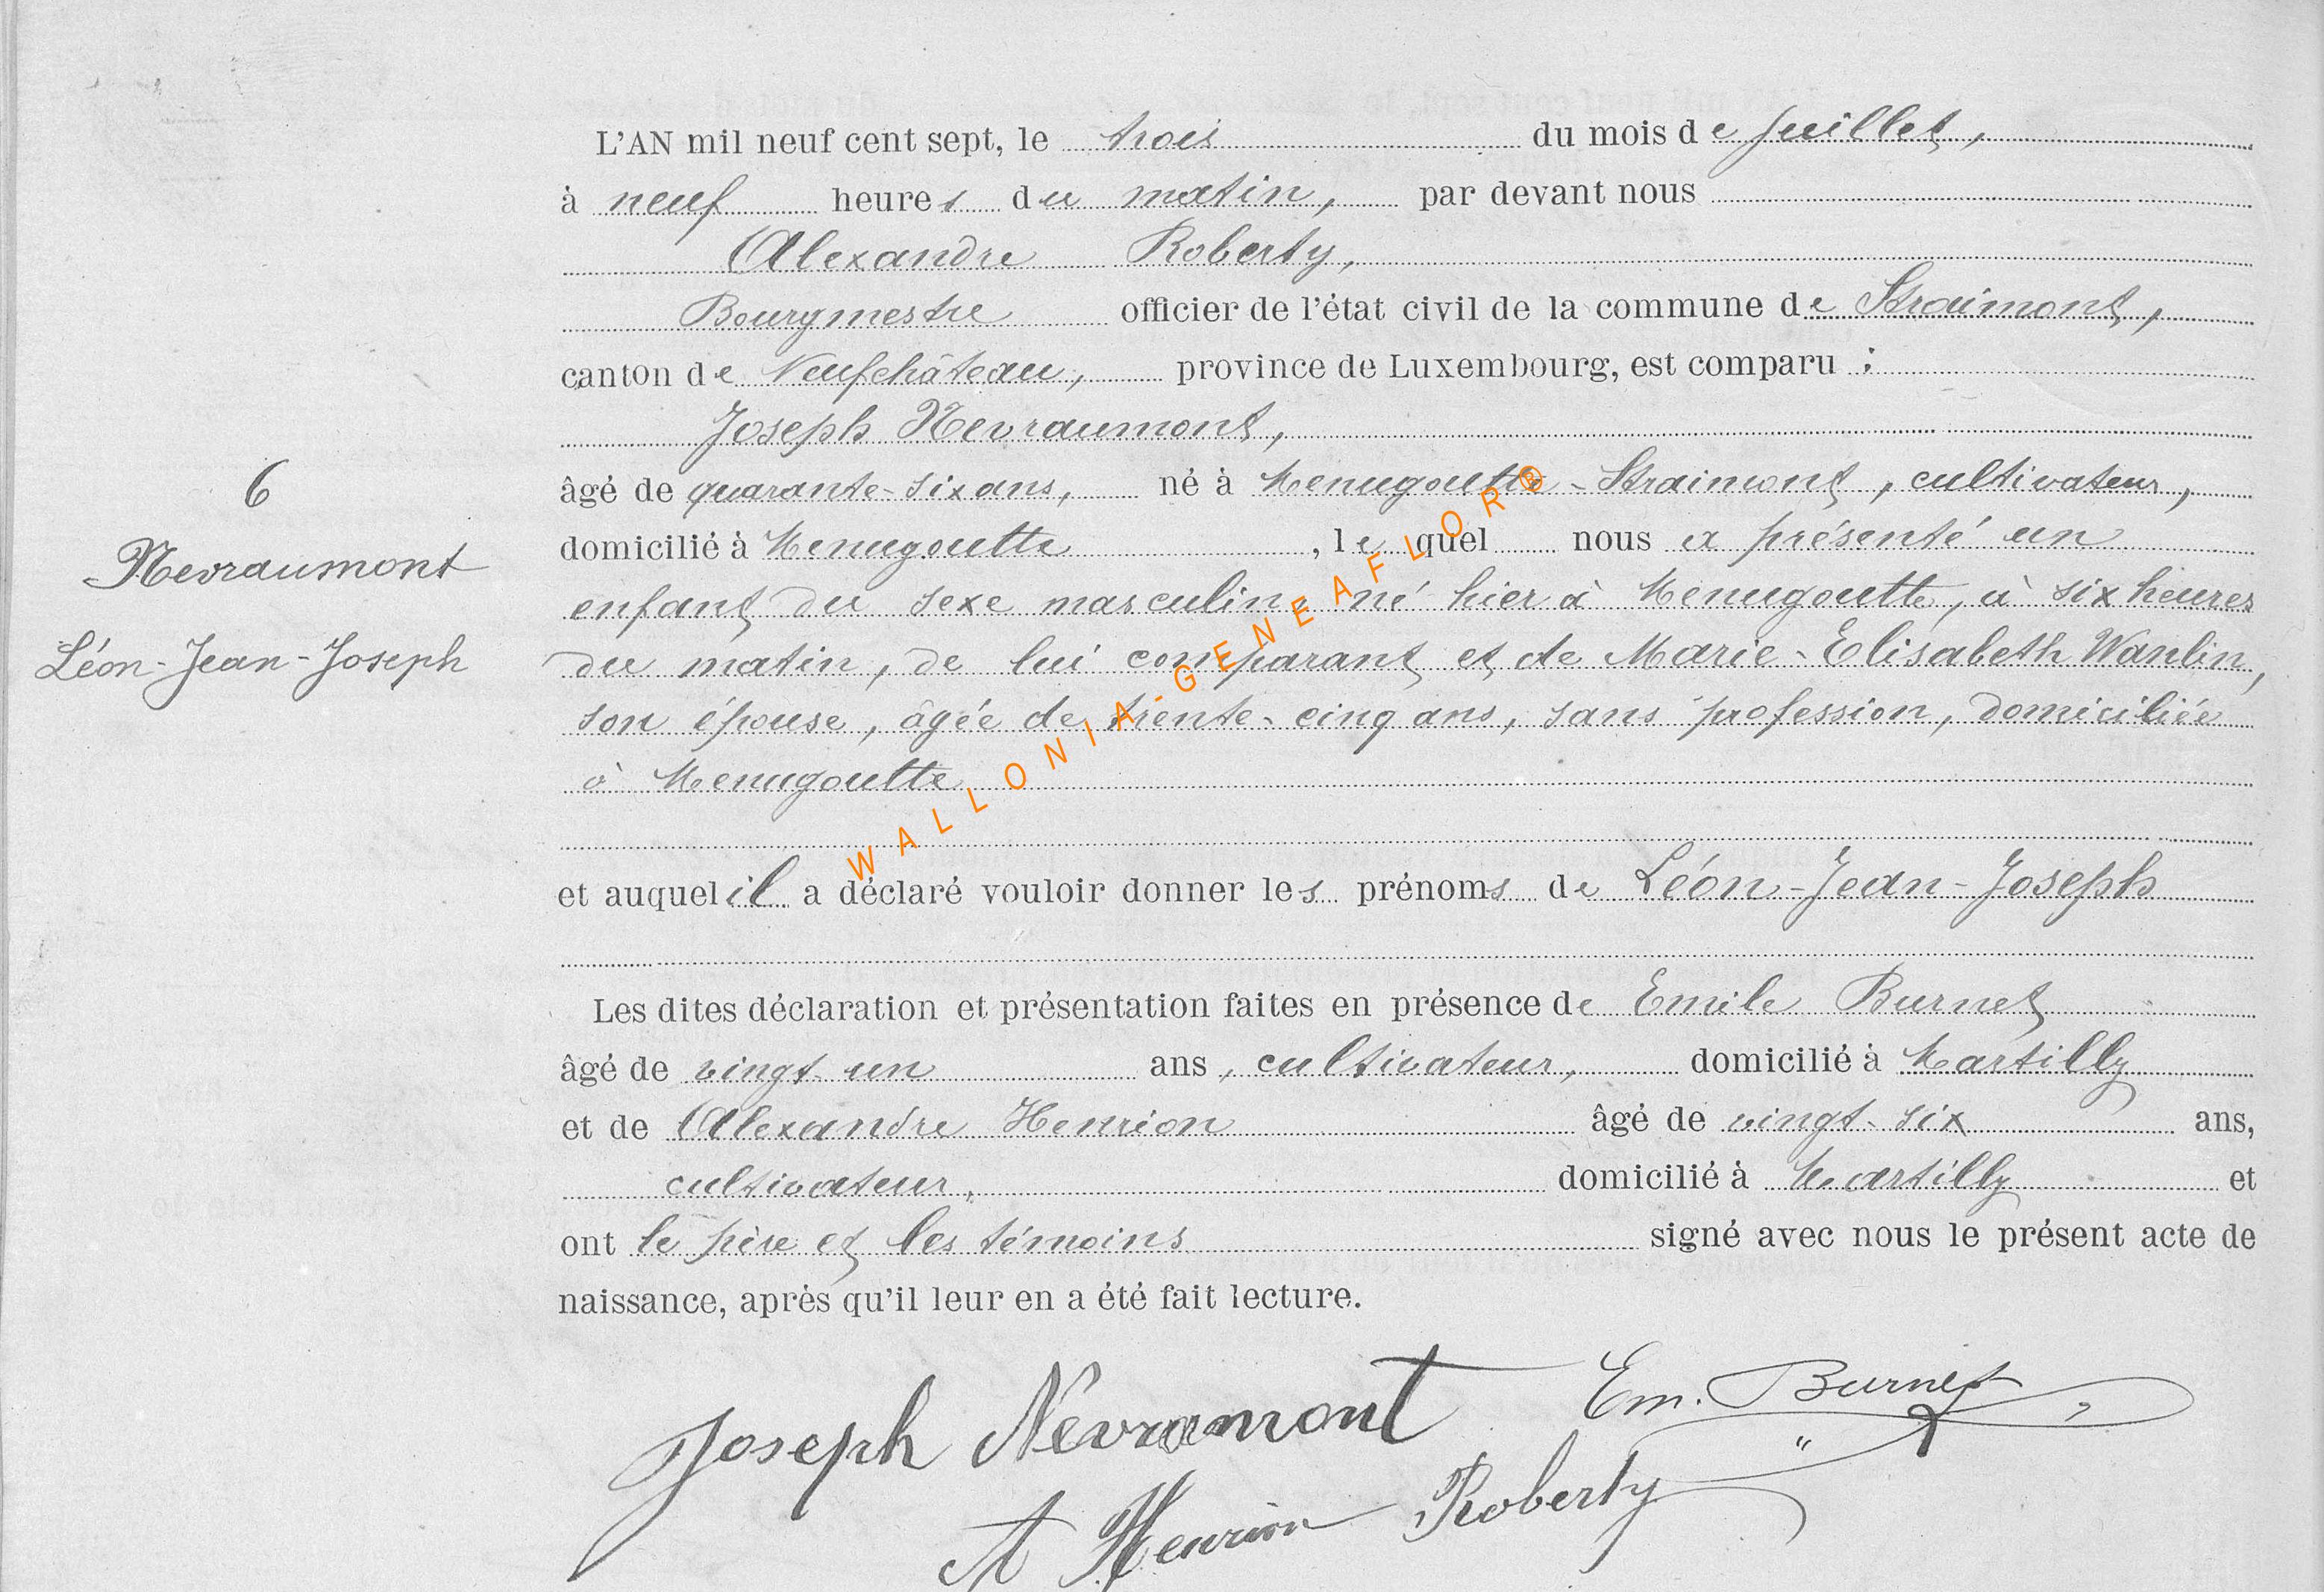 L'AN mil neuf cent sept, le trois du mois de Juillet,
à neuf heures du matin, par devant nous
Alexandre Roberty,
Bourgmestre officier de l'état civil de la commune de Straimont,
canton de Neufchâteau, province de Luxembourg, est comparu :
Joseph Nevraumont,
6
âgé de quarante-six ans, né à Menugoutte-Straimont, cultivateur,
domicilié à Menugoutte, lequel nous a présenté un
Nevraumont
enfant du sexe masculin, né hier à Menugoutte, à six heures
Léon-Jean-Joseph
du matin, de lui comparant et de Marie-Elisabeth Wanlin,
son épouse, âgée de trente-cinq ans, sans profession, domiciliée
à Menugoutte
et auquel il a déclaré vouloir donner les prénoms de Léon-Jean-Joseph
Les dites déclaration et présentation faites en présence de Emile Burnet
âgé de vingt-un ans, cultivateur, domicilié à Martilly
et de Alexandre Henrion âgé de vingt-six ans,
cultivateur, domicilié à Martilly et
ont le père et les témoins signé avec nous le présent acte de
naissance, après qu'il leur en a été fait lecture.
Joseph Névramont Em. Burnet
A Henrion Roberty
WALLONIA-GENEAFLOR®